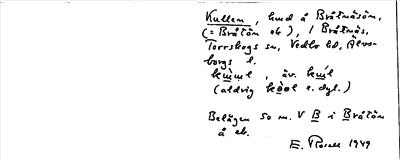 Kullen, hmd å Bråtnäsön,
(= Bråtön ek), i Bråtnäs,
Torrskogs sn, Vedbo hd, Älvs-
borgs l.
äv.
(aldrig e. dyl.)
Belägen 50 m. V B i Bråtön
å ek.
E. Rosell 1949